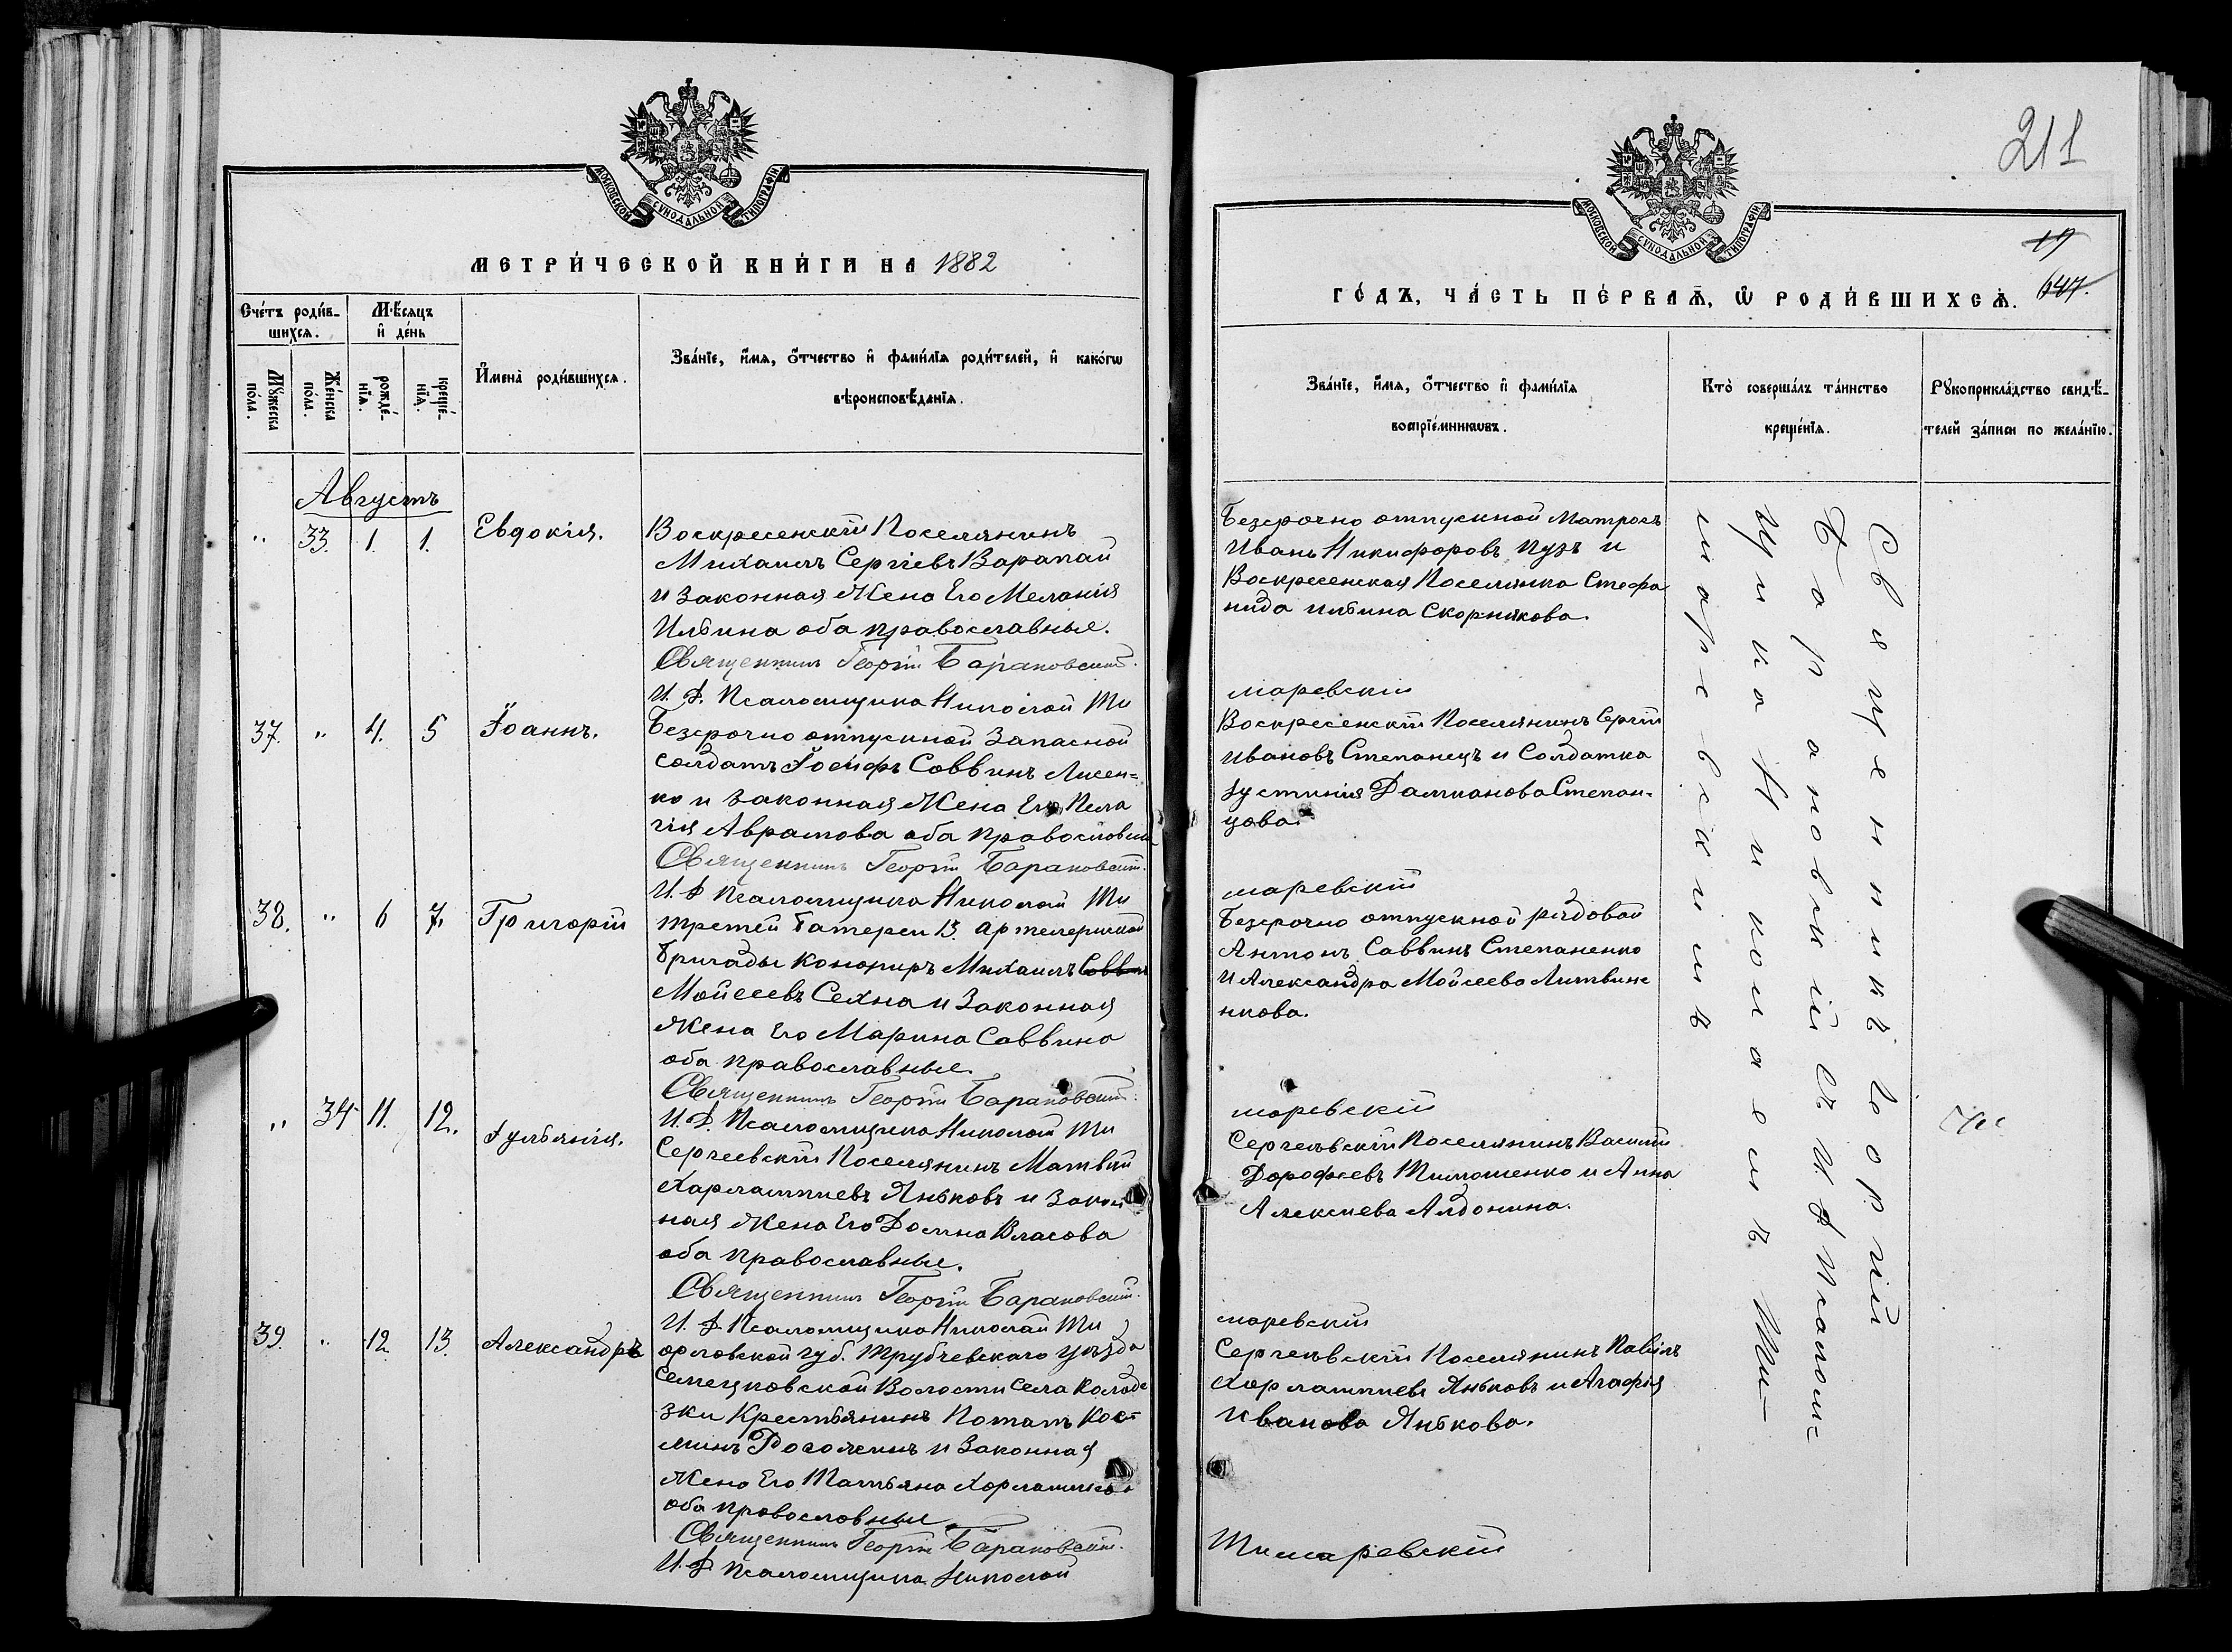 МОСКОВСКОЙ СУНОДАЛЬНОЙ ТИПОГРАФІИ
МЕТРИ́ЧЕСКОЙ КНИ́ГИ НА 1882
Сче́тъ роди́в-
шихсѧ.
Мѣ́сѧцъ
и҆ де́нь
Мꙋ́жеска
по́ла.
Же́нска
по́ла.
рожде́-
нїѧ.
креще́-
нїѧ.
И҆мена̀ роди́вшихсѧ.
Зва́нїе, и҆́мѧ, ѻ҆́тчество и҆ фами́лїѧ роди́телей, и҆ како́гѡ
вѣроисповѣ́данїѧ.
Августъ
" 33. 1. 1. Евдокія.
Воскресенскій Поселянинъ
Михаилъ Сергіевъ Варапай
и законная Жена Его Меланія
Ильина оба православные.
Священникъ Георгій Барановскій.
И. Д. Псаломщика Николай Ти
37. " 4. 5 Іоаннъ.
Безсрочно отпускной Запасной
солдатъ Іосифъ Саввинъ Лисен=
ко и законная Жена Его Пела
гія Аврамова оба православные
Священникъ Георгій Барановскій.
И. Д Псаломщика Николай Ти
38. " 6 7. Григорій
третей Батареи 13. артелерійской
бригады Канониръ Михаилъ Саввинъ
Мойсеевъ Сехна и Законная
Жена Его Марина Саввина
оба православные.
Священникъ Георгій Барановскій.
И. Д. Псаломщика Николай Ти
" 34 11. 12. Іульянія.
Сергеевскій Поселянинъ Матвій
Харлампиевъ Яньковъ и Закон
ная Жена Его Домна Власова
оба православные.
Священникъ Георгій Барановскій.
И. Д. Псаломщика Николай Ти
39. " 12. 13. Александръ
орловской губ. Трубчевскаго Уезда
Семецковской Волости Села Колоде
зки Крестьянинъ Потапъ Кос=
минъ и Законная
Жена Его Татьяна Харлампиева
оба православные
Священникъ Георгій Барановскій.
И. Д Псаломщика Николай
211
МОСКОВСКОЙ СУНОДАЛЬНОЙ ТИПОГРАФІИ
19
647.
ГО́ДЪ, ЧА́СТЬ ПЕ́РВАѦ, Ѡ҆ РОДИ́ВШИХСѦ.
Зва́нїе, и҆́мѧ, ѻ҆́тчество и҆ фами́лїѧ
воспрїе́мникѡвъ.
Кто̀ соверша́лъ та́инство
креще́нїѧ.
Рꙋкоприкла́дство свидѣ́-
телей за́писи по жела́нїю.
Безсрочно отпускной Матросъ
Иванъ Никифоровъ Пузъ и
Воскресенская Поселянка Стефа
нида Ильина Скорнякова.
маревскій
Воскресенскій Поселянинъ Сергій
Ивановъ Степанецъ и Солдатка
Іустинія Дамианова Степан-
цова.
маревскій
Безсрочно отпускной рядовой
Антонъ Саввинъ Степаненко
и Александра Мойсеева Литвине
нкова.
маревскій
Сергеевскій Поселянинъ Василій
Дорофеевъ Тимошенко и Анна
Алексиева Алдонина.
маревскій
Сергеевскій Поселянинъ Павелъ
Харлампиевъ Яньковъ и Агафія
Иванова Янькова.
Тимаревскій
Священникъ Георгій
Барановскій съ И. Д Псалом=
щика Николаемъ Ти-
маревскимъ